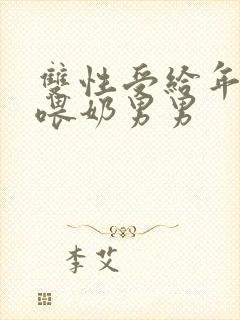 雙性受給年
喂奶男男
李艾